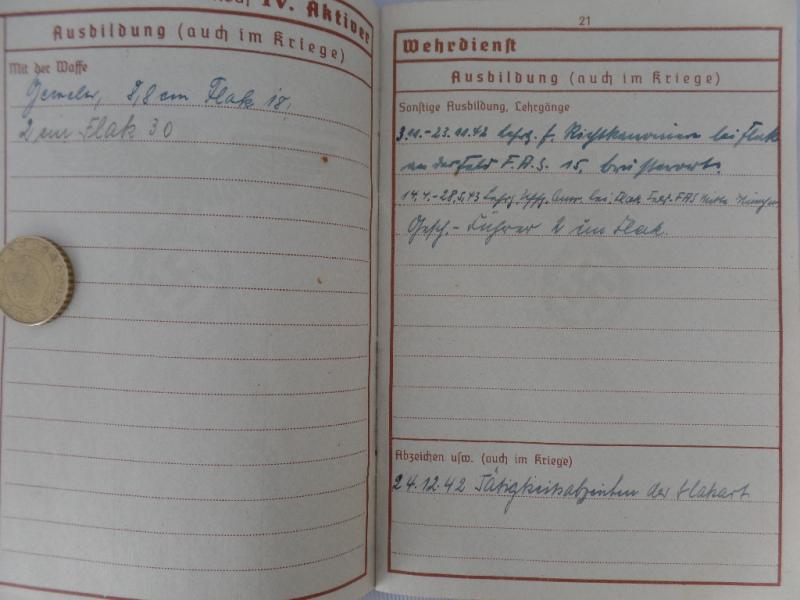 IV. Aktiver
Ausbildung (auch im Kriege)
Mit der Waffe
Gewehr, 8,8 cm Flak 18,
2 cm Flak 30
21
Wehrdienst
Ausbildung (auch im Kriege)
Sonstige Ausbildung, Lehrgänge
3.11.-23.11.42 Lehrg. f. Richtkanoniere bei Flak
an der Feld F.A.S. 15,
14.4.-28.5.43 Lehrg. bei Flak Feld-FAS
Gesch.-Führer 2 cm Flak.
Abzeichen usw. (auch im Kriege)
24.12.42 Tätigkeitsabzeichen der Flakart